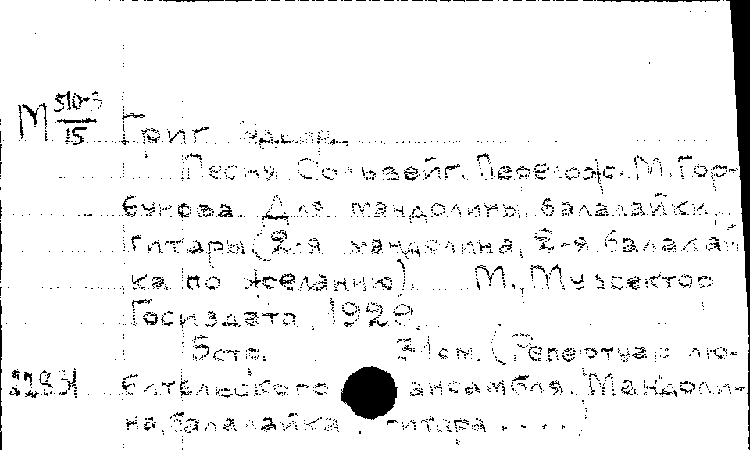 М 510-3/15 Григ Эдвар.
Песня Сольвейг. Перелож. М. Гор-
бунова. Для мандолины, балалайки,
гитары (2-я мандолина, 2-я балалай
ка по желанию). М., Музсектор
Госиздата, 1929.
5 стр. 31 см. (Репертуар лю-
бительского ансамбля. Мандоли-
на, балалайка, гитара....)